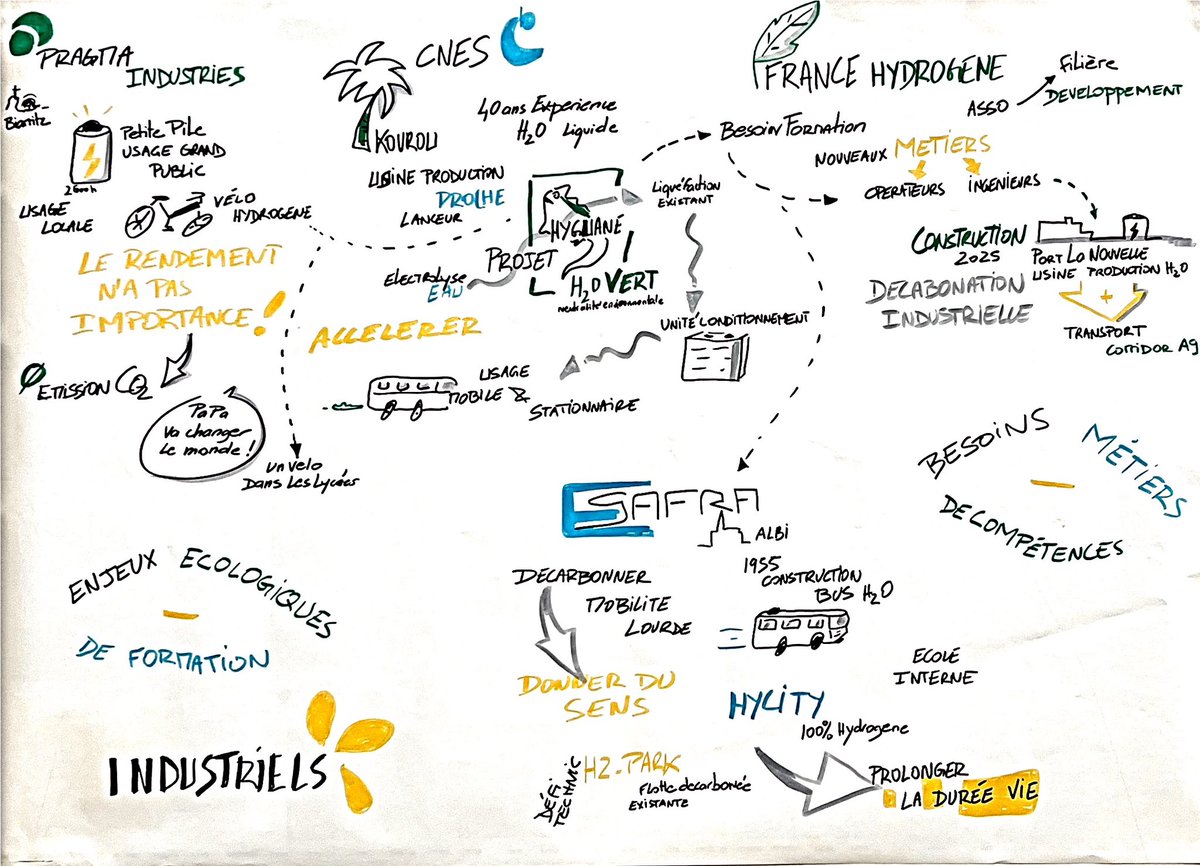 PRAGMA
INDUSTRIES
Biarritz
Petite Pile
USAGE GRAND
PUBLIC
USAGE
LOCALE
VÉLO
HYDROGÈNE
LE RENDEMENT
N'A PAS
IMPORTANCE !
Ø EMISSION CO2
PaPa
Va changer
Le monde !
Un vélo
Dans Les Lycées
CNES
KOUROU
40 ans Expérience
H2O Liquide
USINE PRODUCTION
PROCHE
LANCEUR
HYGUANE
PROJET
H2O VERT
neutralité environnementale
Electrolyse
EAU
ACCELERER
Liquéfaction
EXISTANT
UNITÉ CONDITIONNEMENT
USAGE
MOBILE &
STATIONNAIRE
FRANCE HYDROGÈNE
ASSO
Filière
DEVELOPPEMENT
Besoin Formation
NOUVEAUX METIERS
OPERATEURS
INGENIEURS
CONSTRUCTION
2025
PORT LA NOUVELLE
USINE PRODUCTION H2O
DECABONATION
INDUSTRIELLE
+
TRANSPORT
Corridor A9
BESOINS
MÉTIERS
DE COMPÉTENCES
SAFRA
ALBI
1955
CONSTRUCTION
BUS H2O
DECARBONNER
MOBILITE
LOURDE
DONNER DU
SENS
ECOLE
INTERNE
HYCITY
100% Hydrogene
DÉFI
TECHNIC
H2-PARK
Flotte decarbonée
EXISTANTE
PROLONGER
LA DURÉE VIE
ENJEUX ECOLOGIQUES
DE FORMATION
INDUSTRIELS